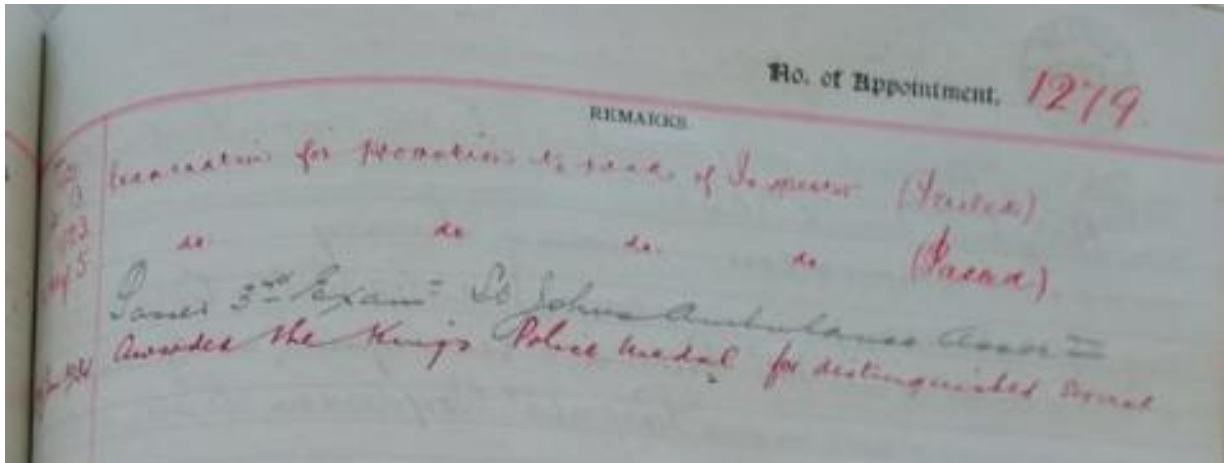 No. of Appointment. 1279
REMARKS.
Examination for Promotion to rank of Inspector (Failed)
do. do do. do. (Passed)
Passed 3rd Exam= St Johns Ambulance Asson=
Awarded the King's Police Medal for distinguished service